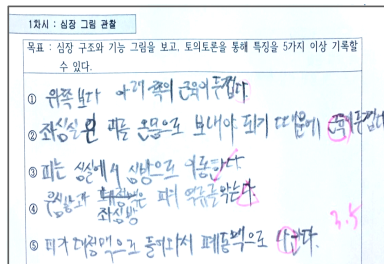 1차시 : 심장 그림 관찰
목표 : 심장 구조와 기능 그림을 보고, 토의토론을 통해 특징을 5가지 이상 기록할
수 있다.
① 위쪽보다 아래쪽의 근육이 두껍다
② 좌심실은 피를 온몸으로 보내야 되기 때문에 근육이 두껍다
③ 피는 심실에서 심방으로 이동한다
④ 피의 역류를 막는다.
좌심방
⑤ 피가 대정맥으로 들어와서 폐동맥으로 나간다.
3.5